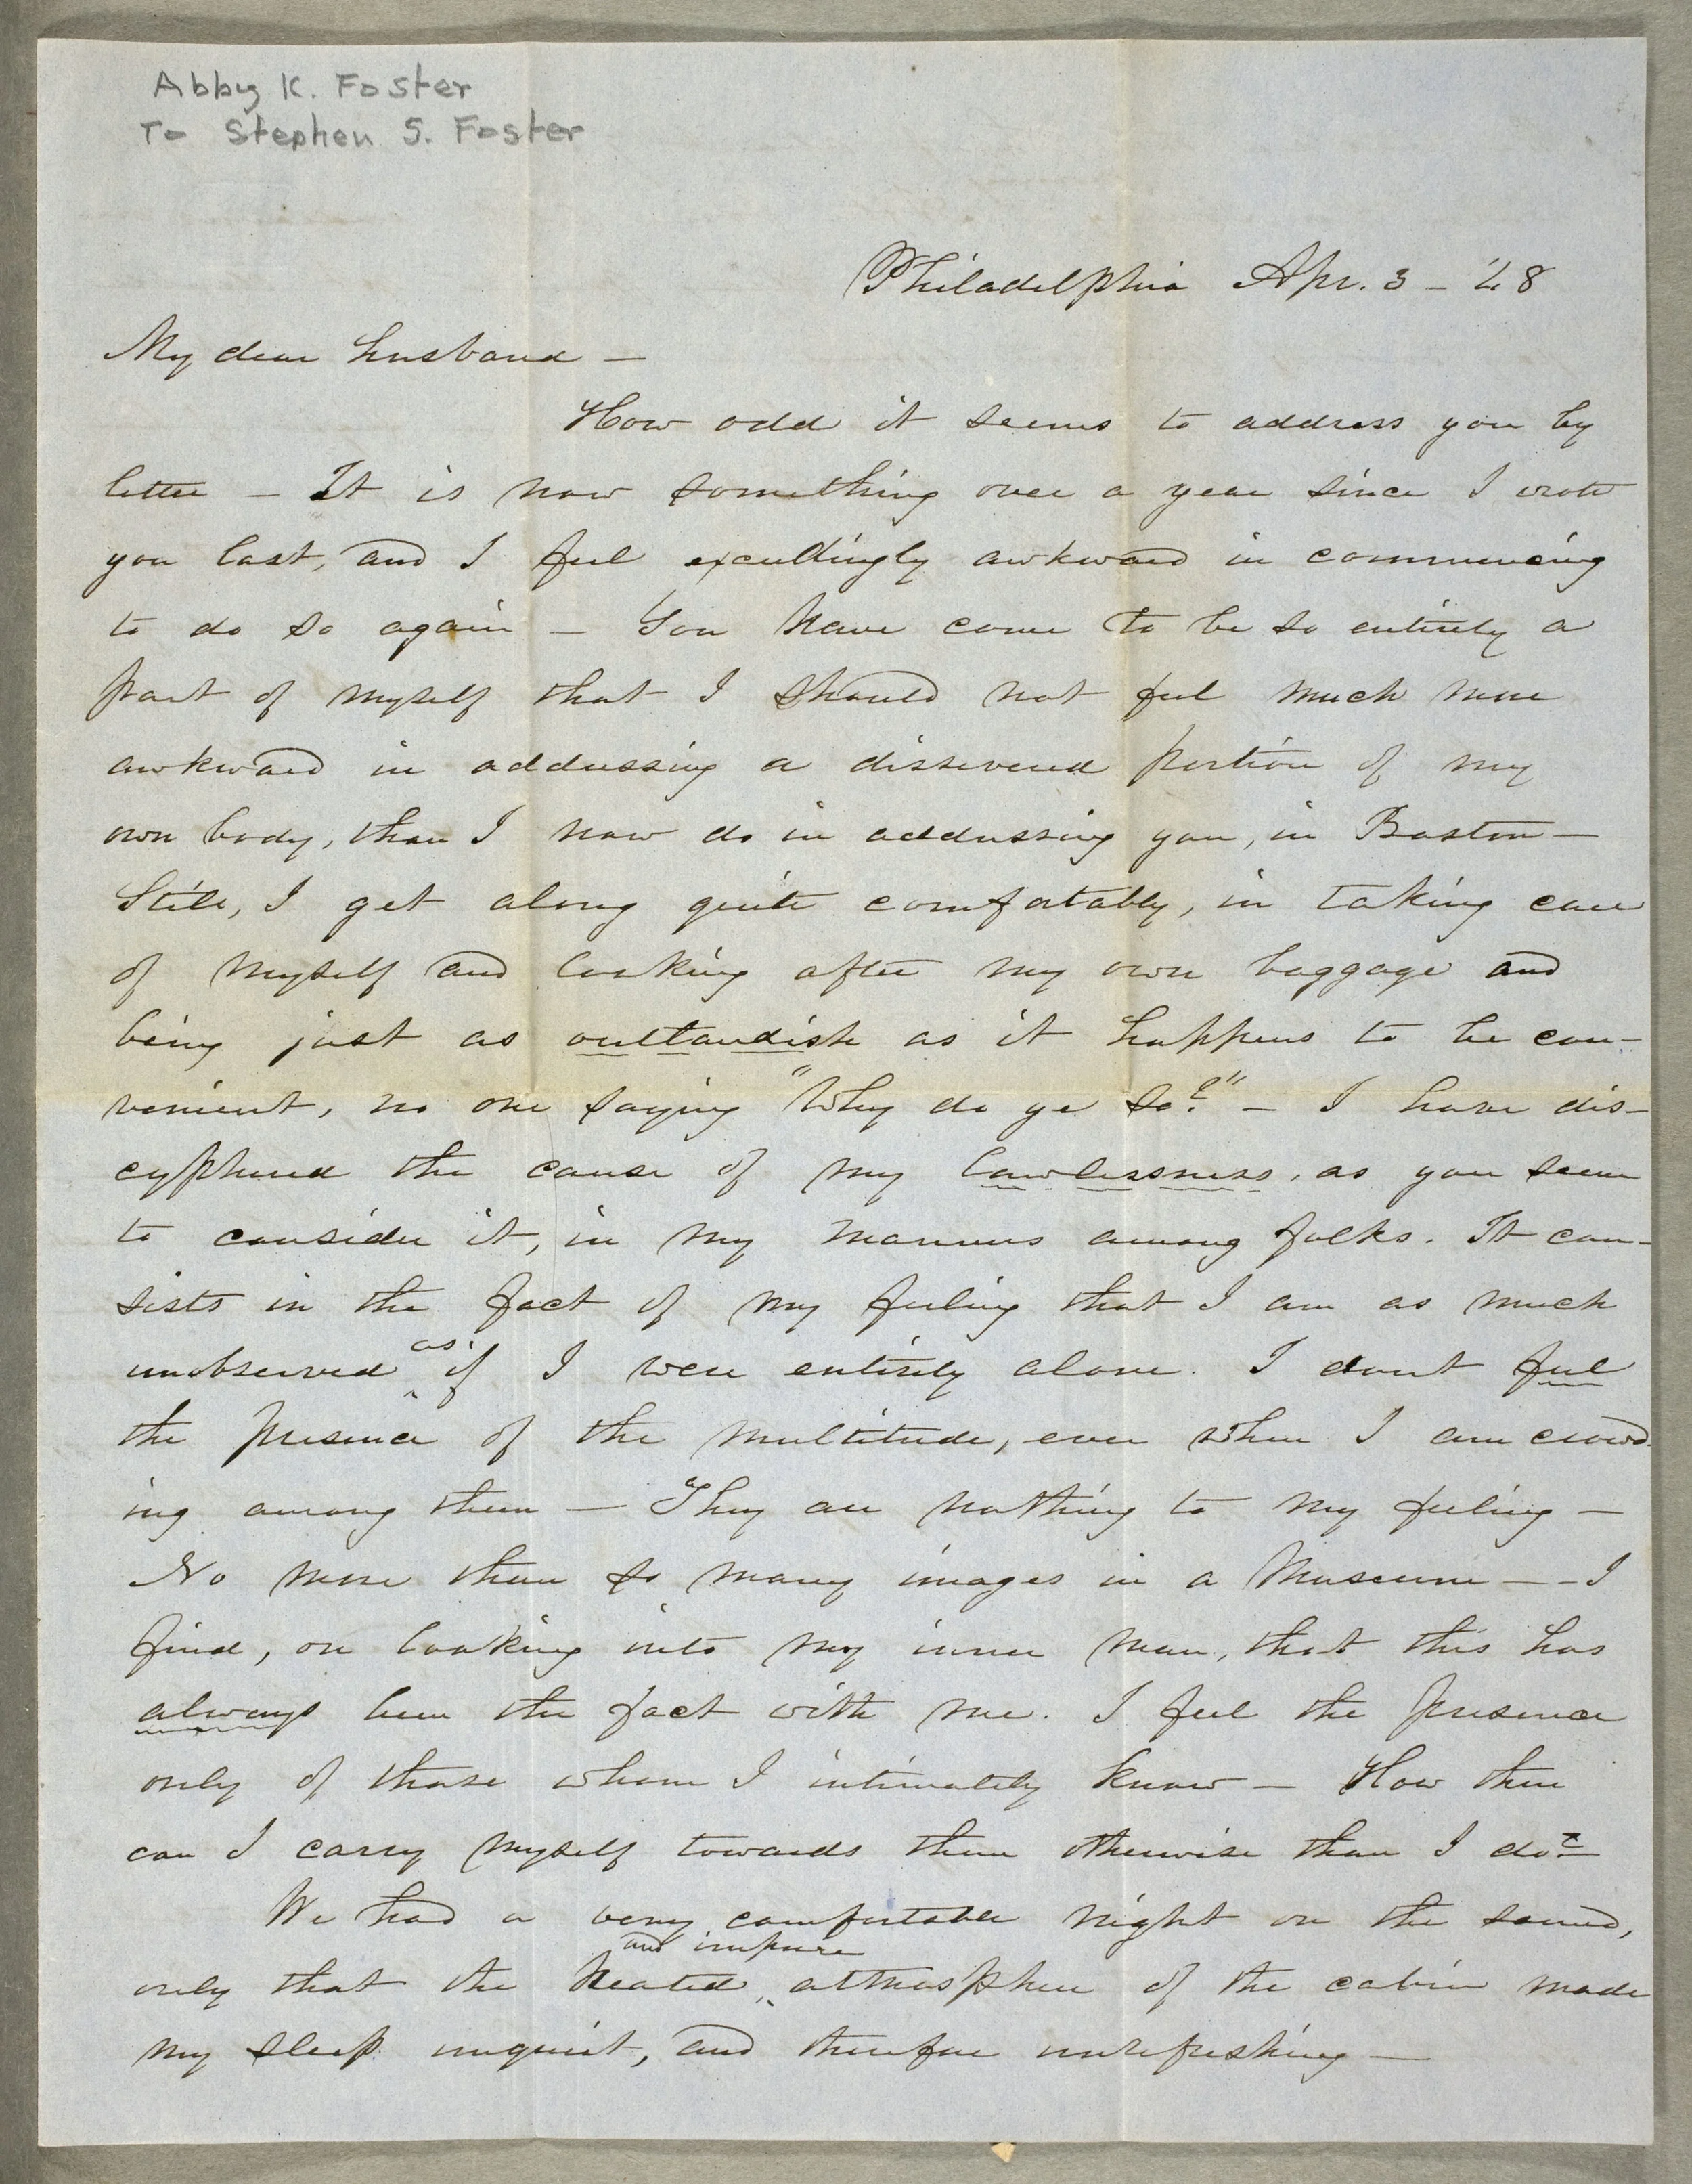 Abby K. Foster
To Stephen S. Foster
Philadelphia Apr. 3 – '48
My dear husband —
How odd it seems to address you by
letter – It is now something over a year since I wrote
you last, and I feel exceedingly awkward in commencing
to do so again – You have come to be so entirely a
part of myself that I should not feel much more
awkward in addressing a dissevered portion of my
own body, than I now do in addressing you, in Boston –
Still, I get along quite comfortably, in taking care
of myself and looking after my own baggage and
being just as outlandish as it happens to be con-
venient, no one saying "Why do ye so?" – I have dis-
cyphered the cause of my lawlessness, as you seem
to consider it, in my manners among folks. It con-
sists in the fact of my feeling that I am as much
unobserved as if I were entirely alone. I dont feel
the presence of the multitude, even when I am crowd-
ing among them — They are nothing to my feeling –
No more than so many images in a Museum – – I
find, on looking into my inner man, that this has
always been the fact with me. I feel the presence
only of those whom I intimately know – How then
can I carry myself towards them otherwise than I do?
We had a very comfortable night on the sound,
only that the heated and impure atmosphere of the cabin made
my sleep unquiet, and therefore unrefreshing —